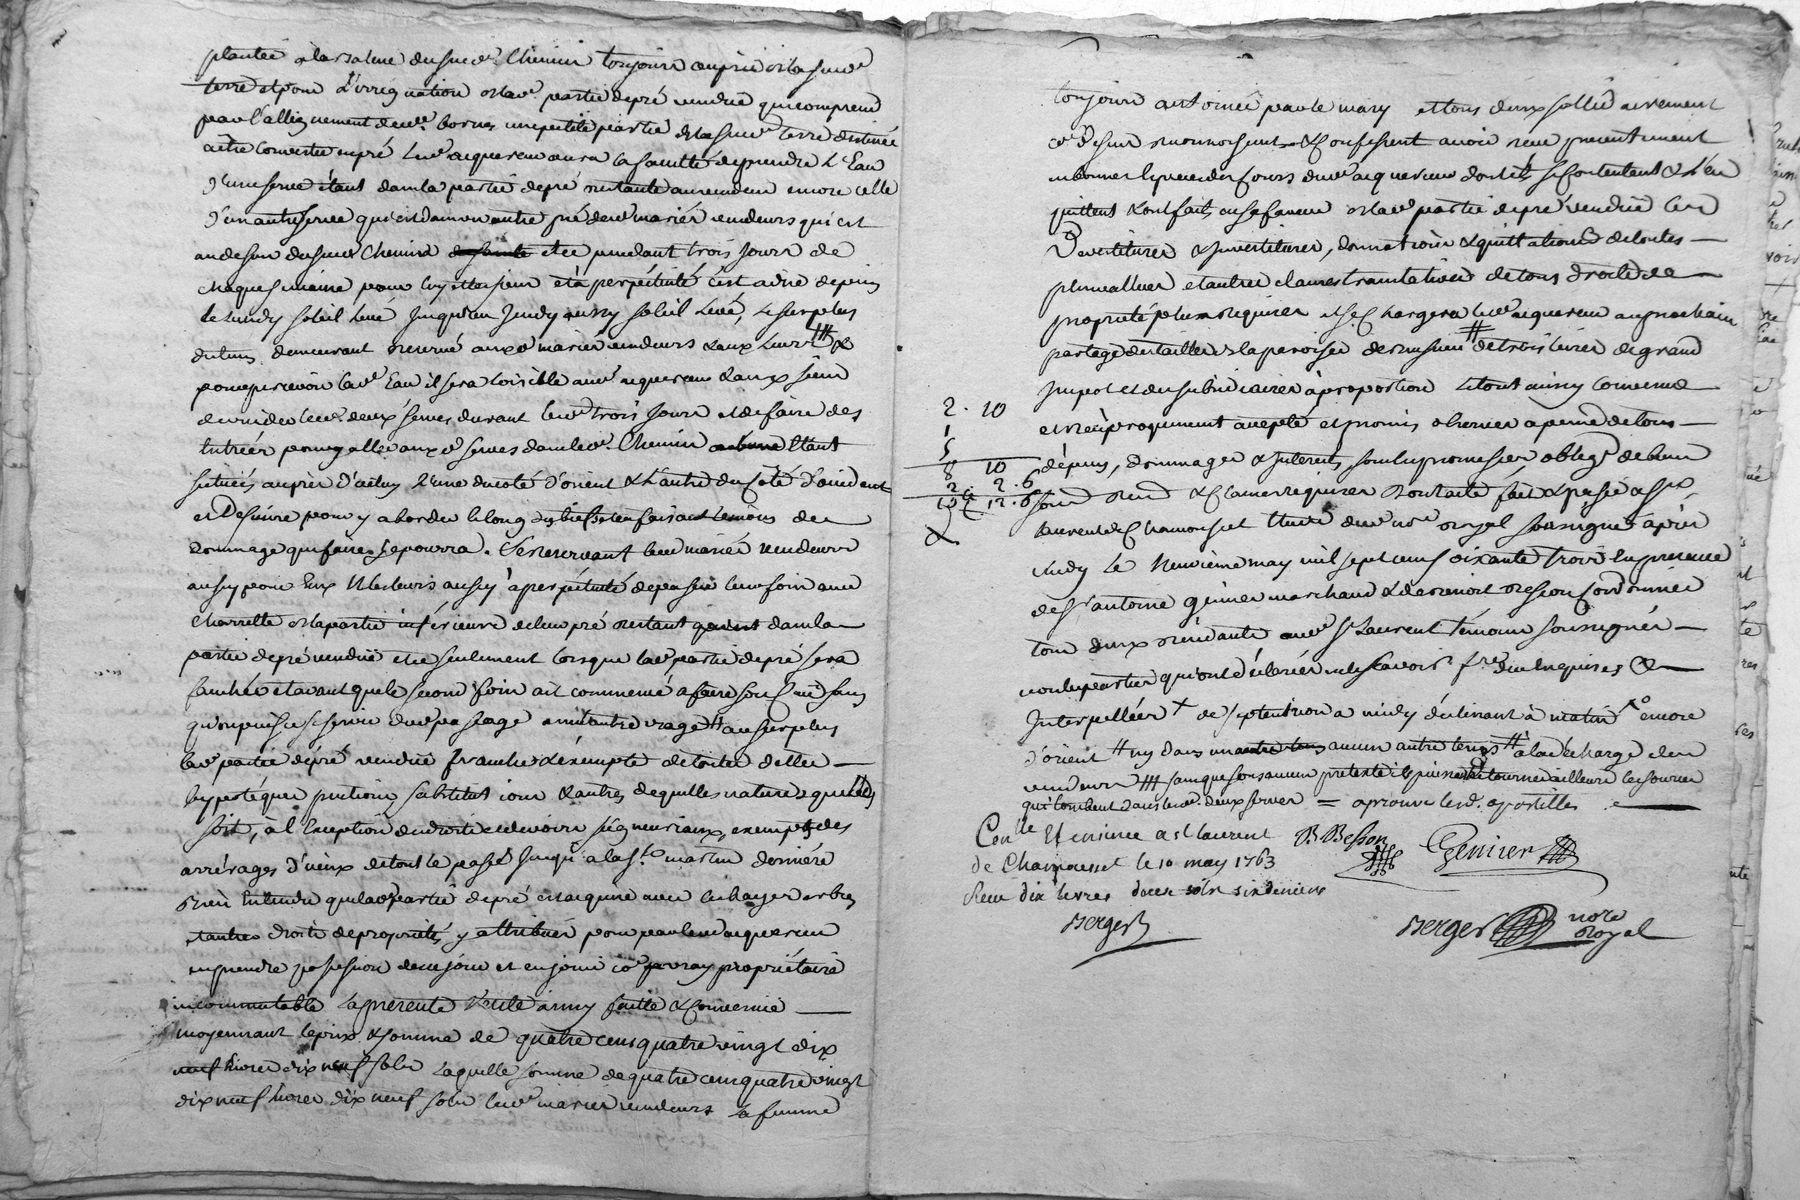 plantée à la ... du susd. Chemin toujours auprès de la susd.
terre et pour l'irrigation de lad. partie de pré vendue qui comprend
par l'allignement desd. bornes une petite partie de la susd. terre destinée
a être Convertie en pré led. acquereur aura la faculté de prendre L'Eau
d'une serve étant dans la partie de pré restante aux vendeurs encore celle
d'un autre serve qui est dans un autre pré desd. mariés vendeurs qui est
au dessus du susd. Chemin et ce pendant trois Jours de
chaque semaine pour luy et les siens et à perpétuité c'est a dire depuis
le Lundy soleil Levé Jusqu'au Jeudy aussy soleil Levé, Le surplus
du tems demeurant reservé auxd. mariés vendeurs & aux Leurs ⧻ &
pour percevoir lad. Eau il sera loisible aud. acquereur & aux siens
de vuider lesd. deux serves durant lesd. trois Jours et de faire des
Entrées pour aller auxd. serves dans led. Chemin Etant
situées auprès d'iceluy L'une du coté d'orient & L'autre du Coté d'occident
et De suivre pour y aborder le long des biefs en faisant le moins de
Dommage que faire se pourra. Se reservant lesd. mariés vendeurs
aussy pour Eux & les leurs aussy à perpétuité de passer leur foin avec
Charrette de la partie inférieure de leur pré restant dans la
partie de pré vendue et ce seulement lorsque lad. partie de pré sera
fauchée et avant que le second foin ait commencé a faire son sans
qu'on puisse se servir dud. passage a un autre usage # au surplus
lad. partie de pré vendue franche & exempte de toutes dettes
hypotéques pentions substitutions & autres de quelles natures que
soit, à l'Exception des droits et devoirs seigneuriaux, exempts des
arrérages d'iceux de tout le passé Jusqu'a la St. martin dernière
Bien Entendu que lad. partie de pré est acquise avec les hayes arbres
& autres droits de proprietés y attribués pour par led. acquereur
en prendre possession dès ce jour et en jouir co. vray propriétaire
incommutable La présente Vente ainsy faite & Convenue
moyennant le prix & somme de quatre cens quatre vingt dix
neuf livres dix neuf sols Laquelle somme de quatre cens quatre vingt
dix neuf livres dix neuf sols lesd. mariés vendeurs La femme
toujours autorisée par le mary et tous deux sollidairement
co. dessus reconnoissent & Confessent avoir reçu presentement
en bonnes Espèces de Cours dud. acquereur dont ils se Contentent & L'en
quittent & ont fait en sa faveur de lad. partie de pré vendue les
Devestitures & Investitures, donnations & quittations de toutes
plusvallues et autres clauses translatives de tous droits de
propriété plus requises et se Chargera led. acquereur au prochain
partage des tailles de la paroisse # de trois livres de grand
Impot et du subsidiaires à proportion Letout ainsy Convenu
et reciproquement accepté et promis observer a peine de tous
2. 10
1
5
8 10
2. 6
10 12. 6
dépens, dommages & Interets, sous les promesses, obliga. de biens
soum. renon. & Clauses requises dont acte fait & passé a St.
Laurent de Chamousset Etude dud. nore. royal soussigné après
midy Le Neuvième may mil sept cens soixante trois En presence
de Sr. antoine genier marchand & de benoit Besson Cordonnier
tous deux residants aud. St Laurent témoins soussignés
non les parties qui ont déclaré ne le savoir f.re de ce Enquises &
Interpellées × de septentrion a midy déclinant à matin ×° encore
d'orient # ny dans aucun autre tems # à la décharge des
vendeurs ⧻ sans que sous aucun pretexte ils puissent détourner ailleurs les sources
qui tombent dans lesd. deux serves = aprouvé lesd. apostilles
Conlé. Et insinué a St laurent
de Chamousset le 10 may 1763
Reçu dix livres douze sols six deniers
Berger
B. Besson
Genier
Berger nore
Royal